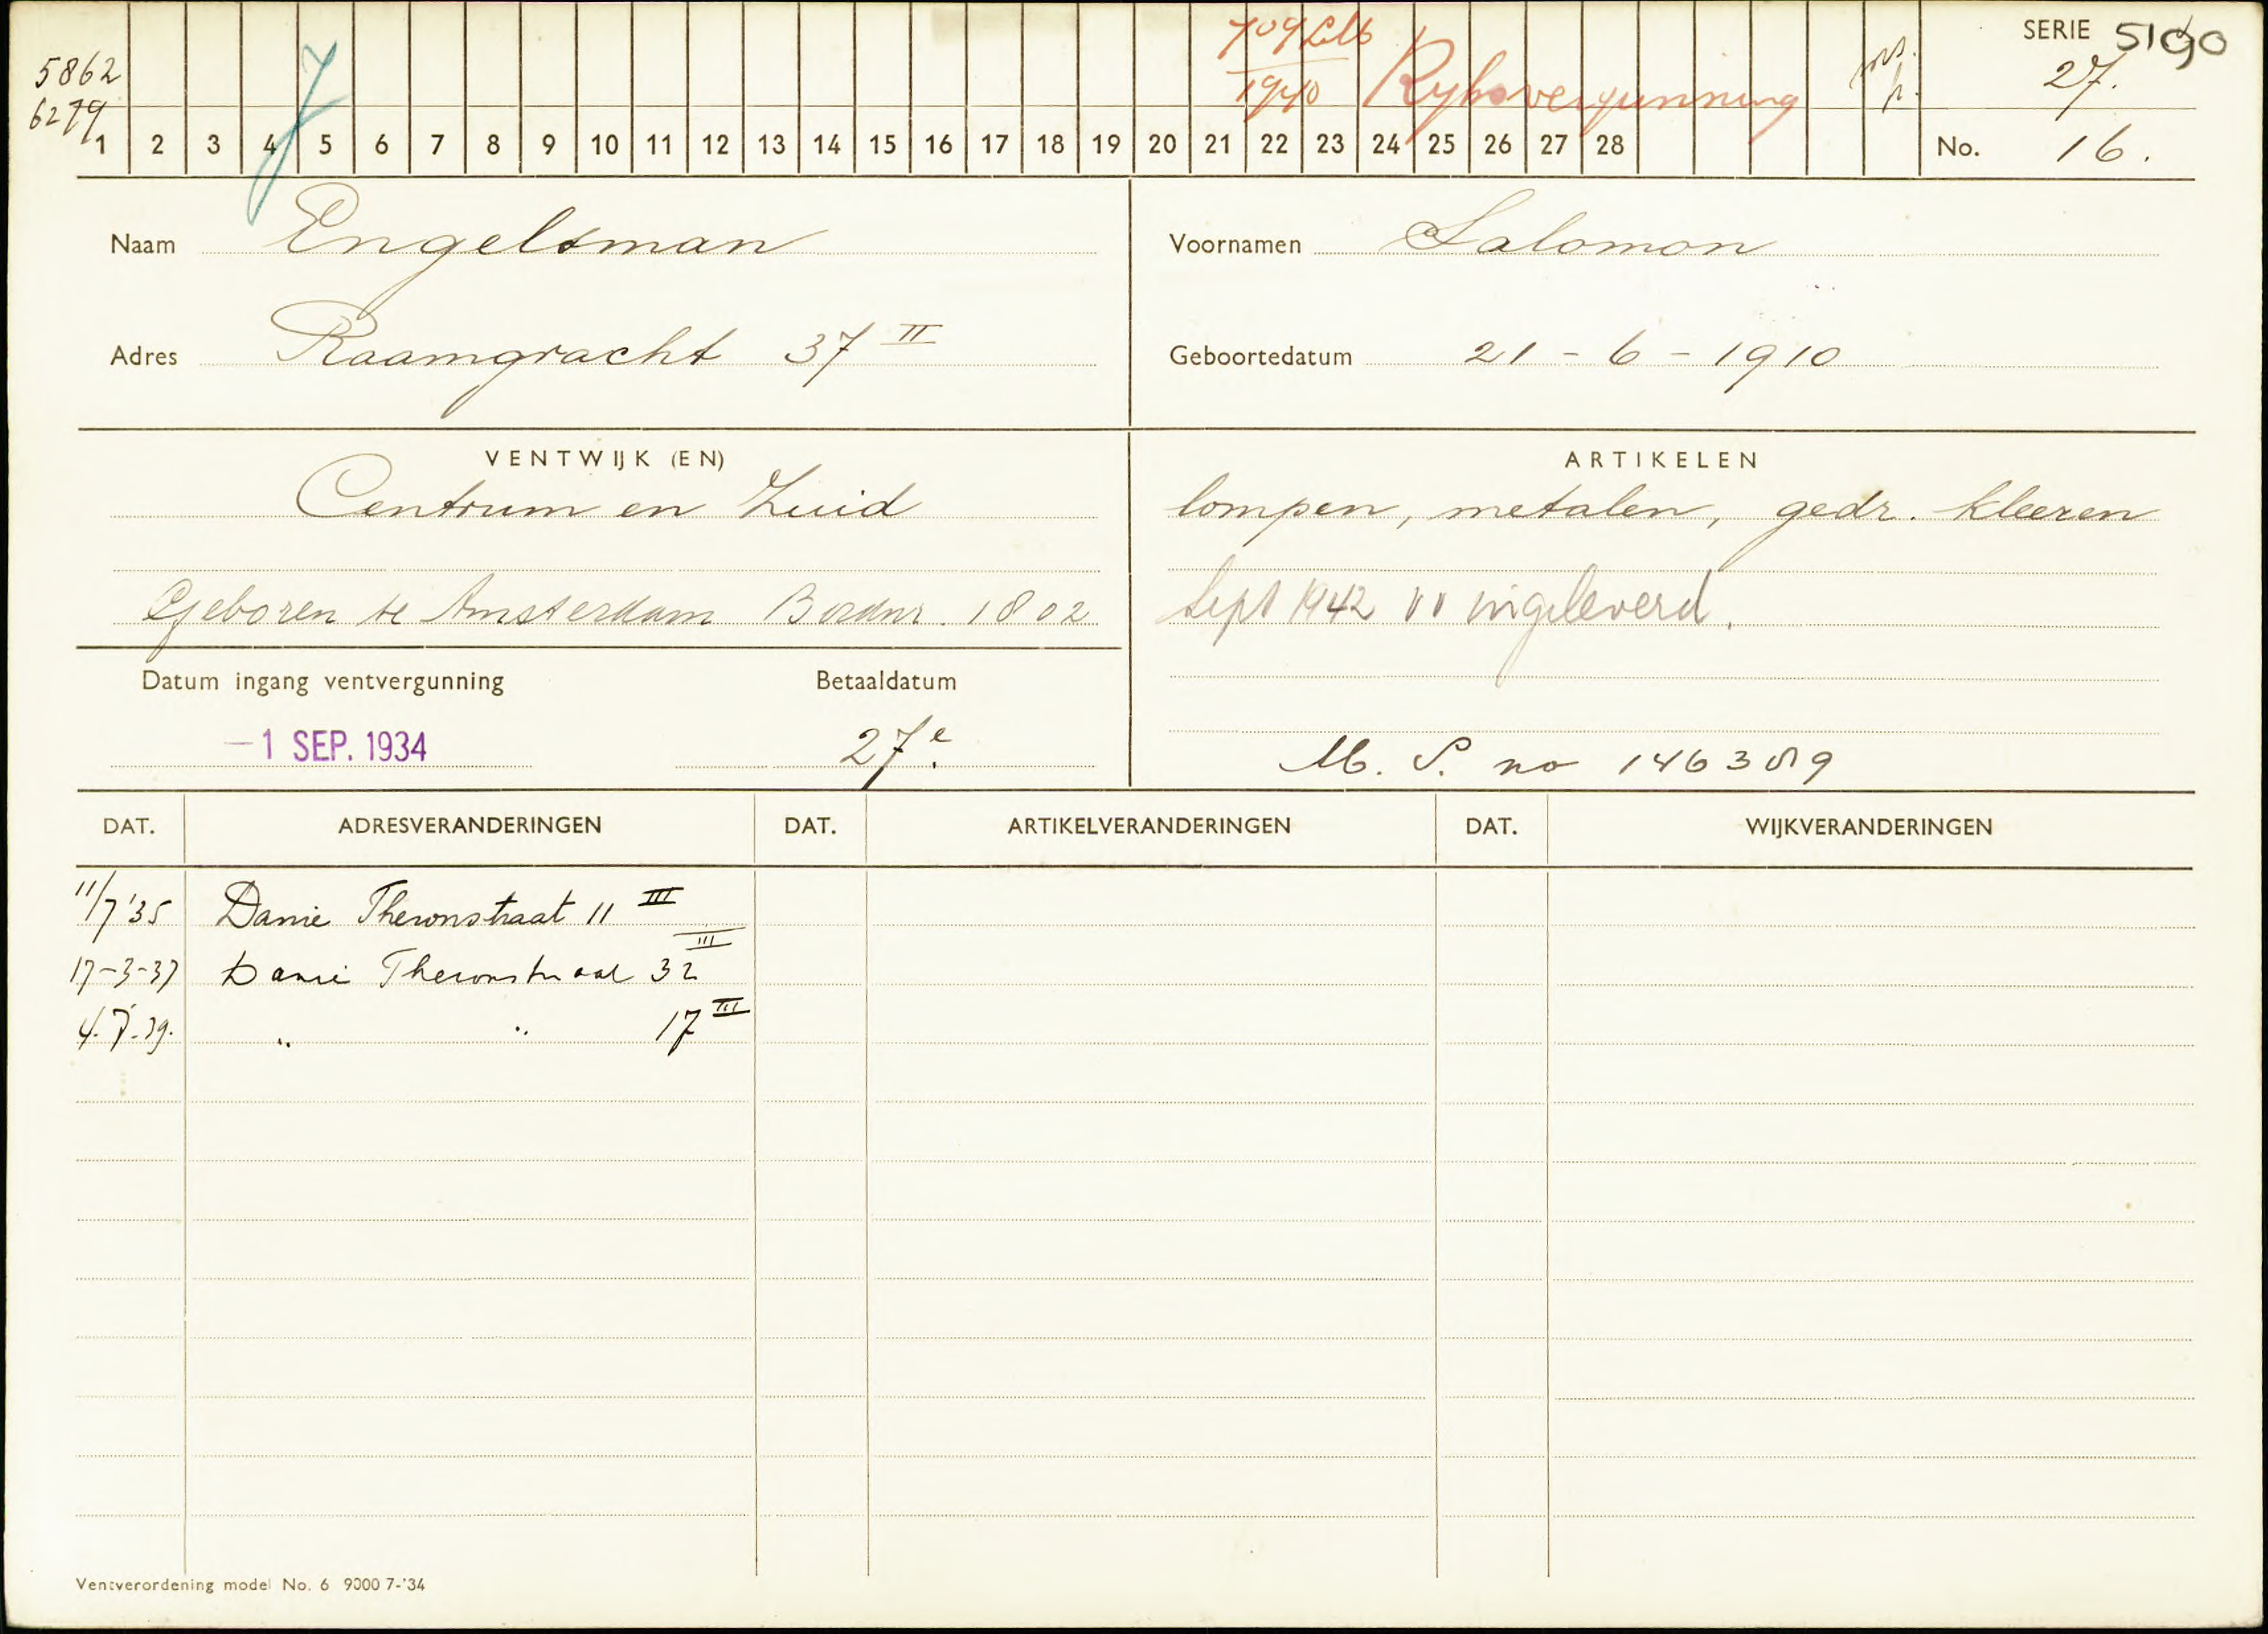 5862
6279
J
709 L116
1940
Rijksvergunning
SERIE 5190
27.
1 2 3 4 5 6 7 8 9 10 11 12 13 14 15 16 17 18 19 20 21 22 23 24 25 26 27 28
No. 16.
Naam Engelsman
Voornamen Salomon
Adres Raamgracht 37 II
Geboortedatum 21-6-1910
VENTWIJK (EN)
Centrum en Zuid
Geboren te Amsterdam Boeknr. 1802
ARTIKELEN
lompen, metalen, gedr. kleeren
Sept 1942 vv ingeleverd.
M. S. no 146389
Datum ingang ventvergunning
-1 SEP. 1934
Betaaldatum
27e.
DAT. ADRESVERANDERINGEN DAT. ARTIKELVERANDERINGEN DAT. WIJKVERANDERINGEN
11/7'35 Danie Theronstraat 11 III
17-3-37 Danie Theronstraat 32 III
4.7.39. " " 17 III
Ventverordening model No. 6 9000 7-'34